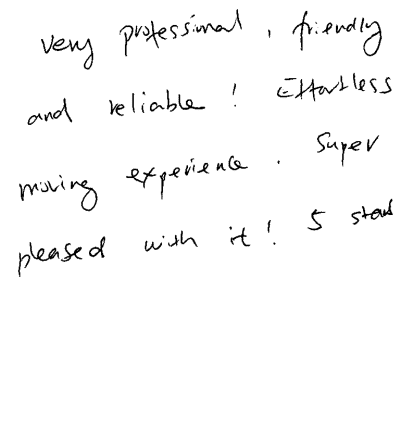 very professional, friendly
and reliable! Effortless
moving experience. Super
pleased with it! 5 stars